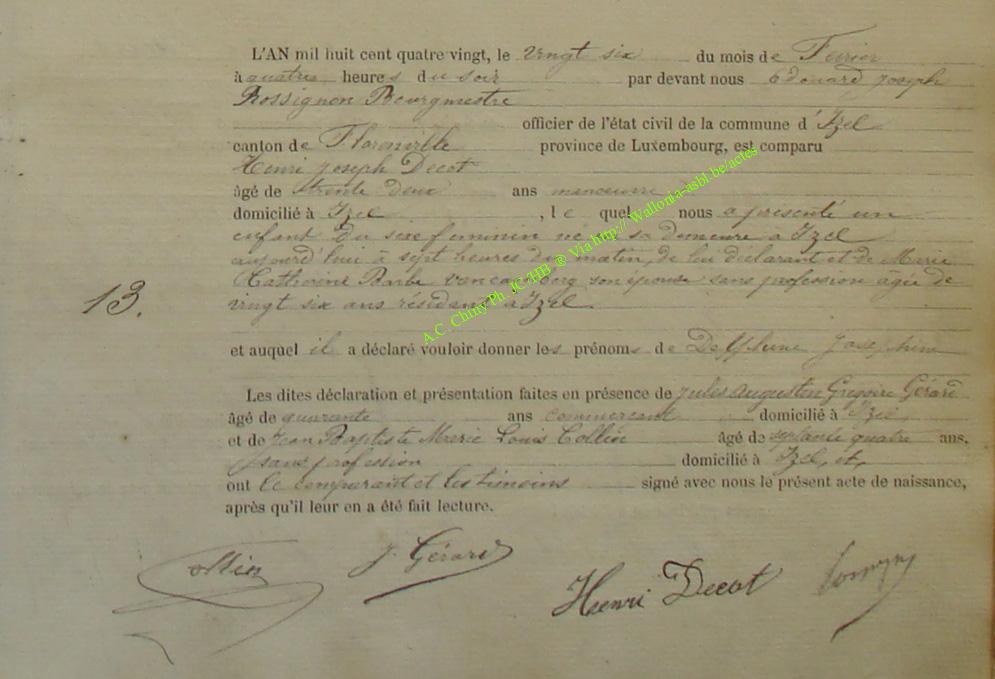 L'AN mil huit cent quatre vingt, le vingt six du mois de Fevrier
à quatre heures du soir par devant nous Edouard Joseph
Rossignon Bourgmestre
officier de l'état civil de la commune d'Izel
canton de Florenville province de Luxembourg, est comparu
Henri Joseph Decot
âgé de trente deux ans manoeuvre
domicilié à Izel, le quel nous a présenté un
enfant du sexe feminin né sa demeure à Izel
aujourd'hui à sept heures du matin, de lui déclarant et de Marie
Catherine Barbe son épouse sans profession âgée de
13.
vingt six ans résidant à Izel
et auquel il a déclaré vouloir donner les prénoms de Delphine Josephine
Les dites déclaration et présentation faites en présence de Jules Augustin Gregoire Gérard
âgé de quarante ans commercant domicilié à Izel
et de Jean Baptiste Marie Louis Collin âgé de septante quatre ans,
sans profession domicilié à Izel, et,
ont le comparant et les témoins signé avec nous le présent acte de naissance,
après qu'il leur en a été fait lecture.
Collin J. Gérard
Henri Decot
A.C Chiny Ph. JC-HB @ Via http:// Wallonia-asbl.be/actes